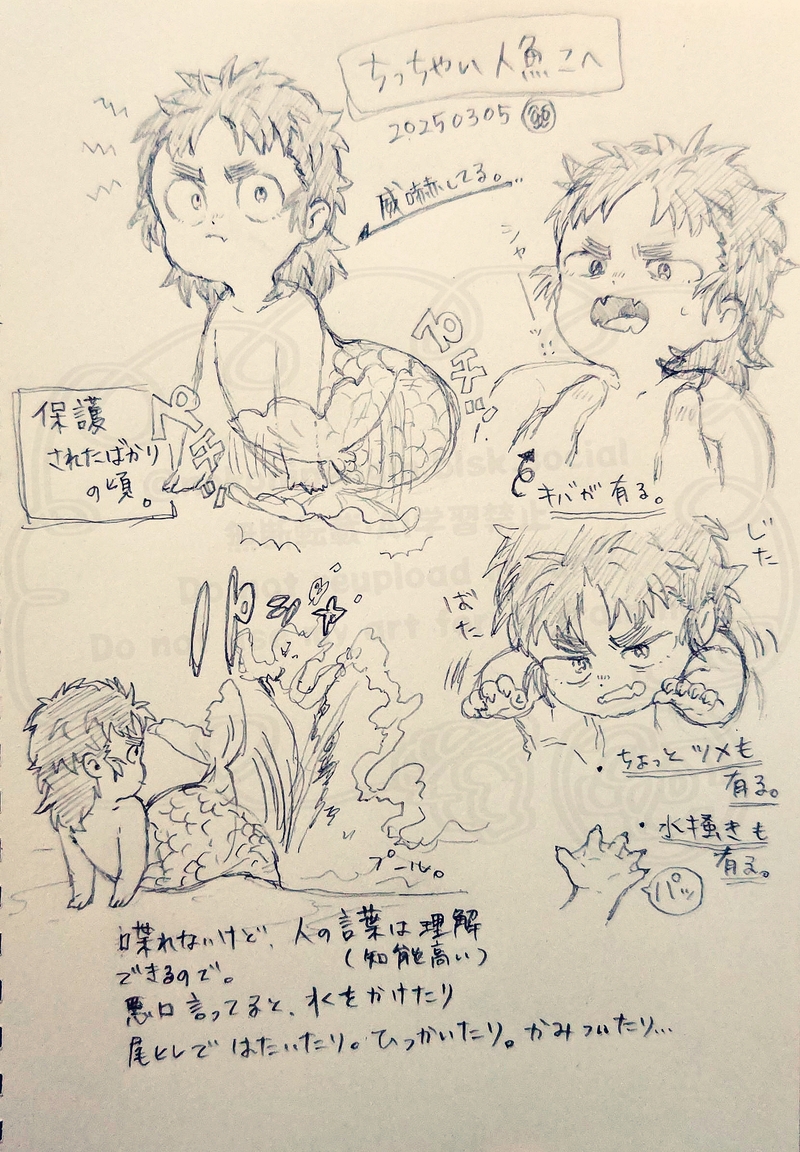 ちっちゃい人魚こへ
20250305
威嚇してる。…
シャーッ
保護
されたばかり
の頃。
プルプル
キバが有る。
じた
ばた
ちょっとツメも
有る。
水掻きも
有る。
パッ
プール。
喋れないけど、人の言葉は理解
(知能高い)
できるので。
悪口言ってると、水をかけたり
尾ヒレではたいたり。ひっかいたり。かみついたり…
無断転載・AI学習禁止
Do not reupload